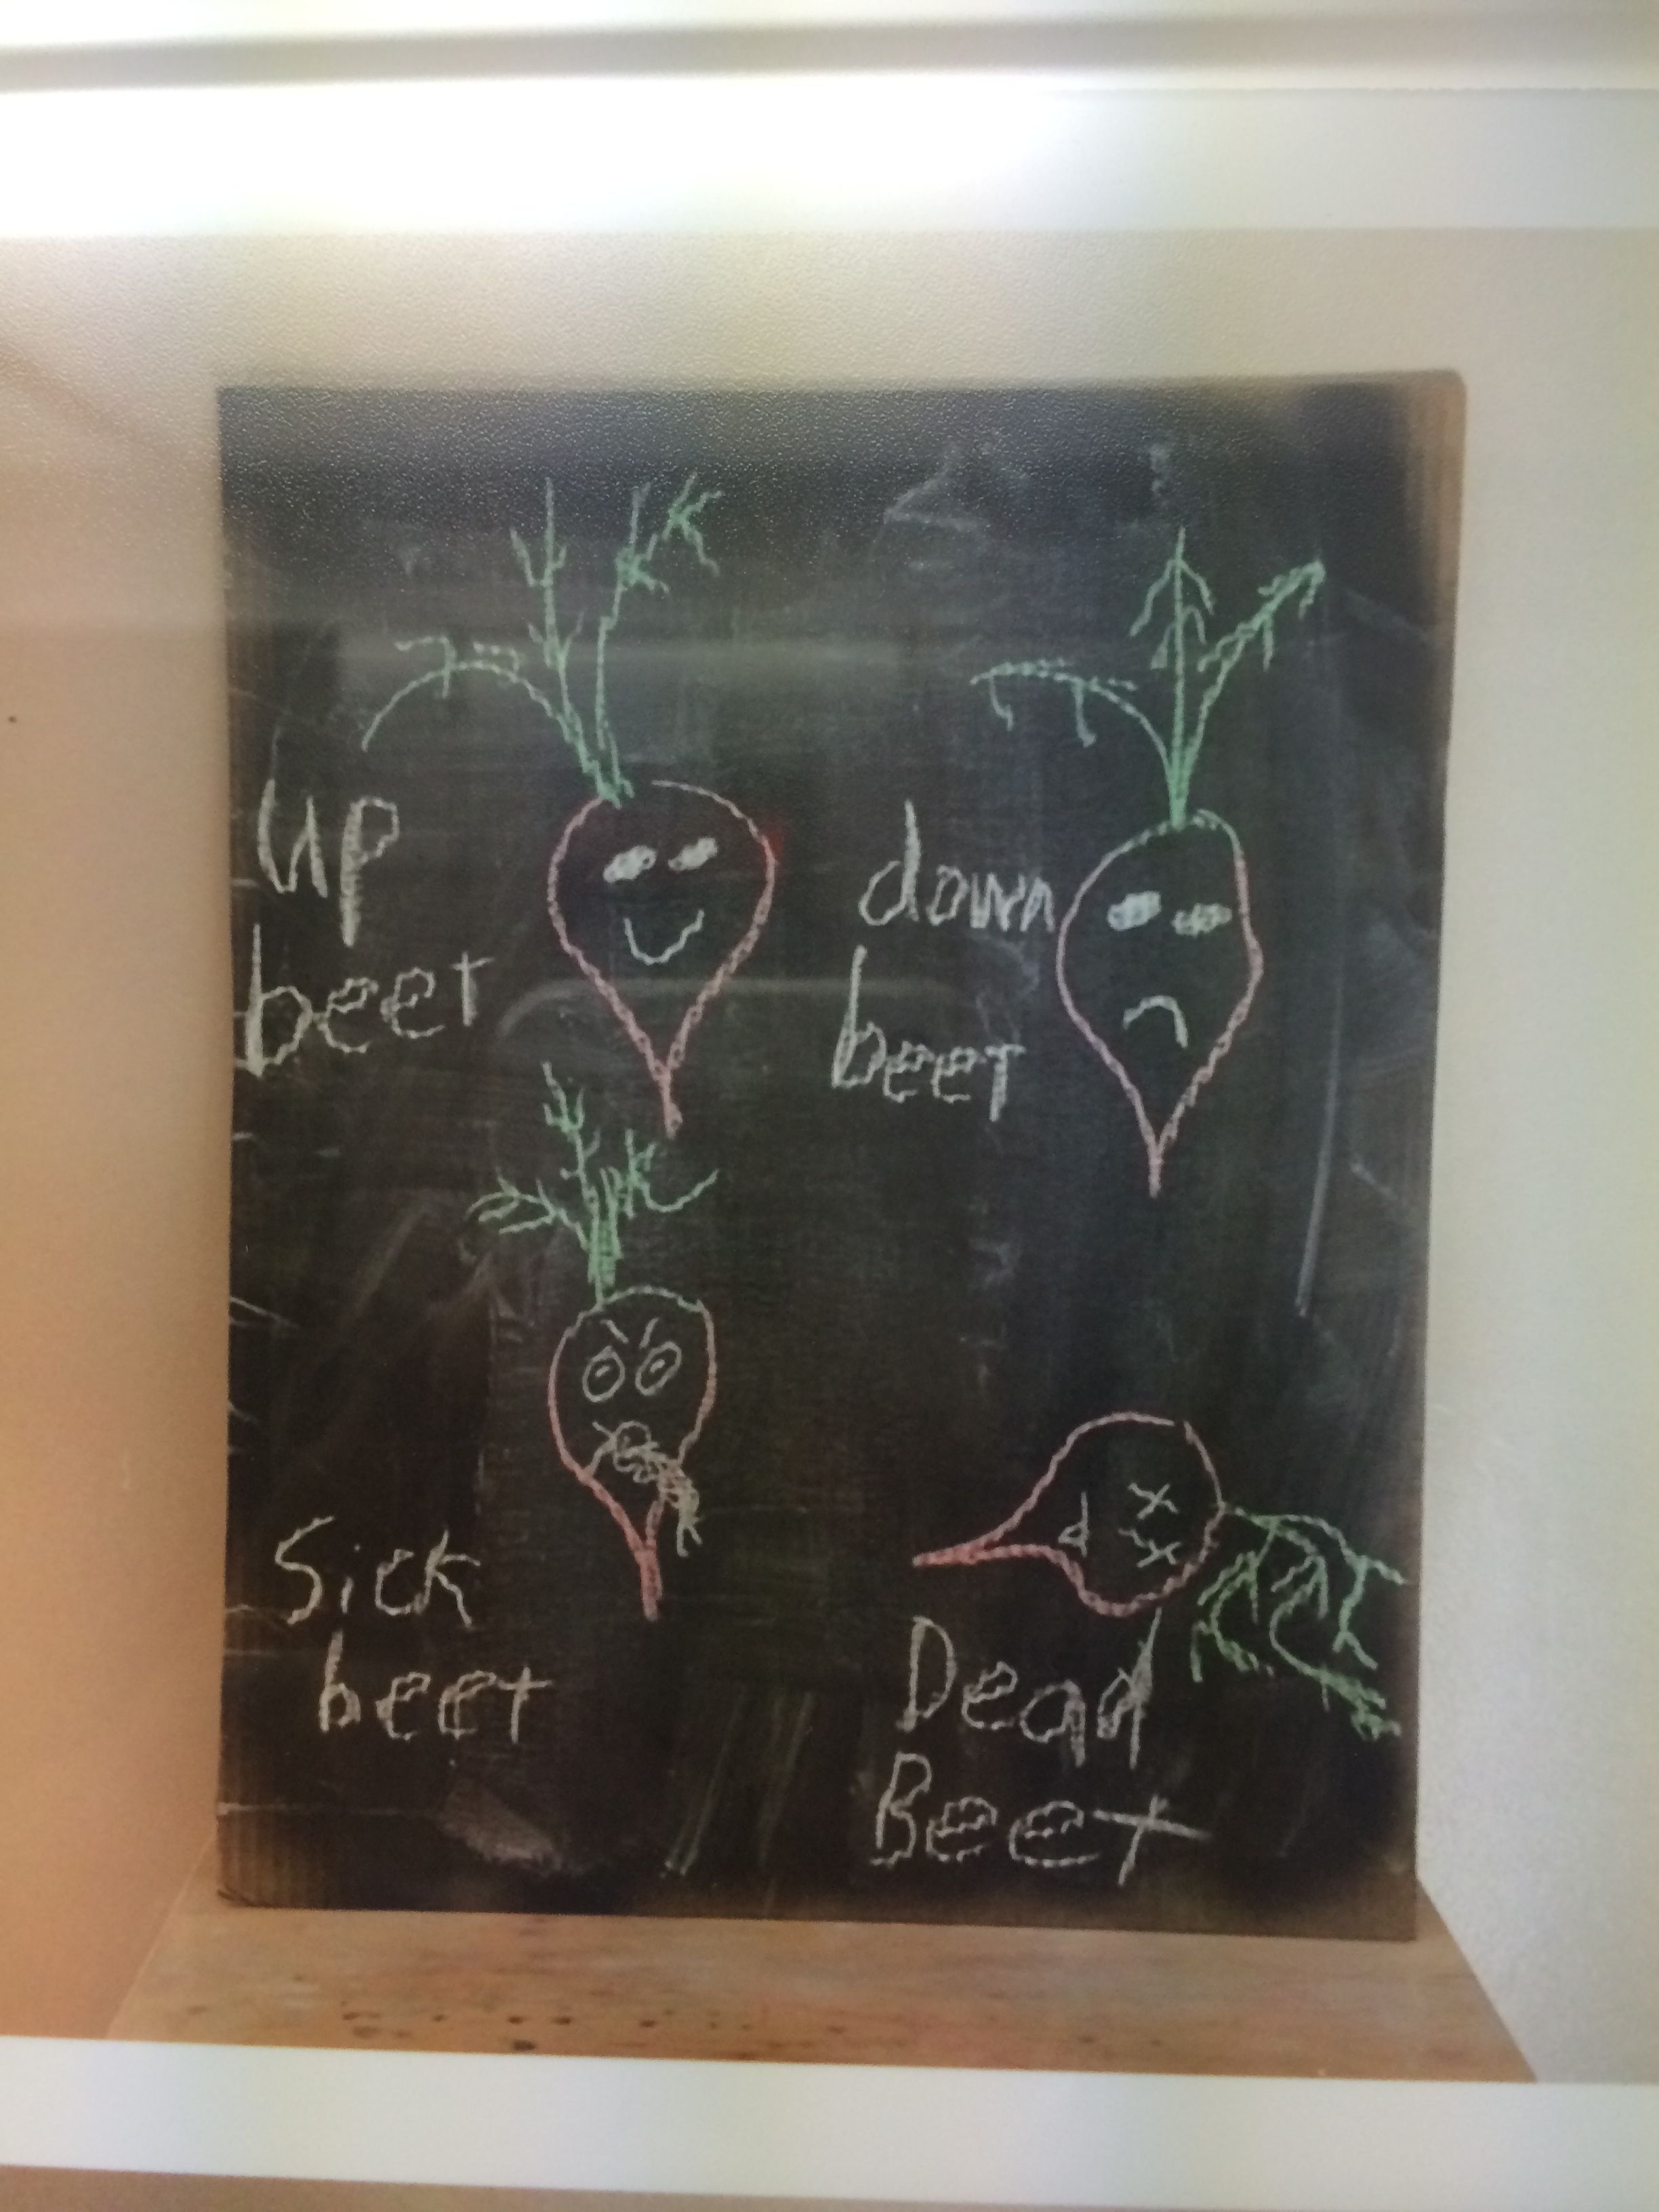 up
beet
down
beet
Sick
beet
Dead
Beet